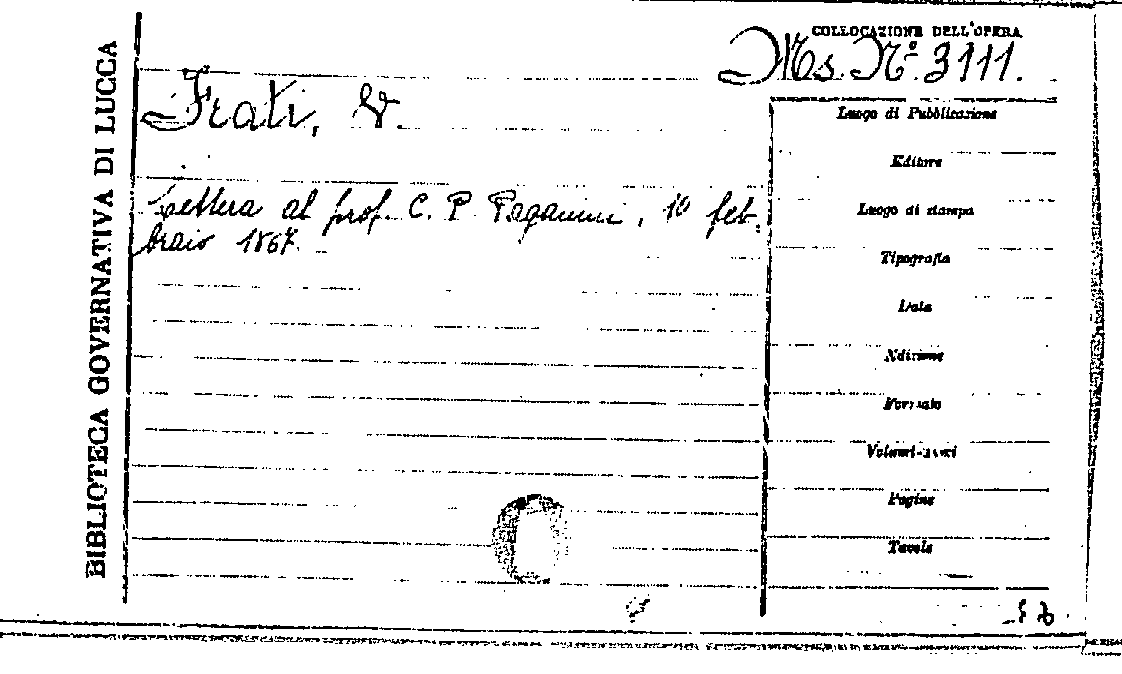 BIBLIOTECA GOVERNATIVA DI LUCCA
COLLOCAZIONE DELL'OPERA
Ms. N.º 3111.
Frati,
Lettera al prof. C. P. Paganini, 10 feb
braio 1867.
Luogo di Pubblicazione
Editore
Luogo di stampa
Tipografia
Data
Edizione
Formato
Volumi-
Pagine
Tavole